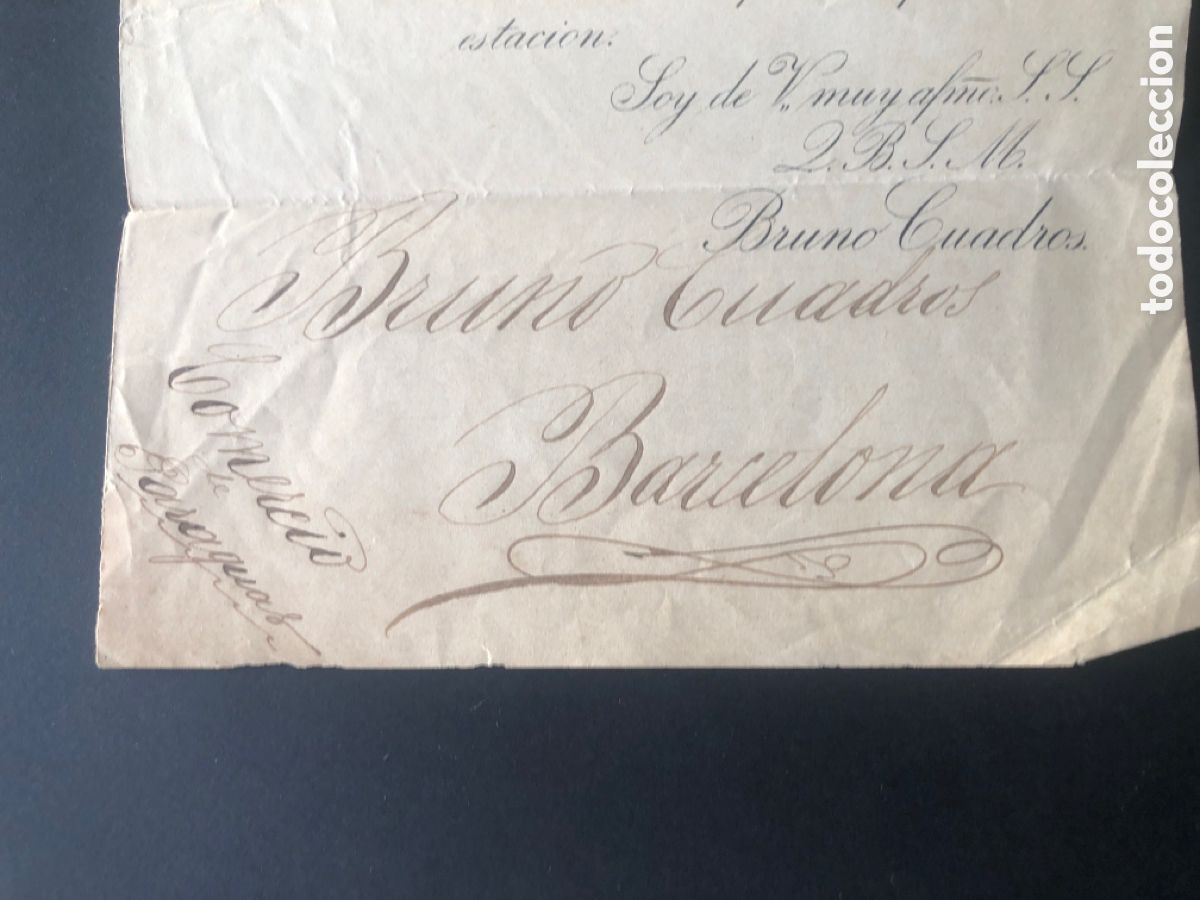 estacion.
Soy de V. muy afmo. S. S.
Q. B. S. M.
Bruno Cuadros.
Bruno Cuadros
Barcelona
Comercio
de
Paraguas
todocoleccion